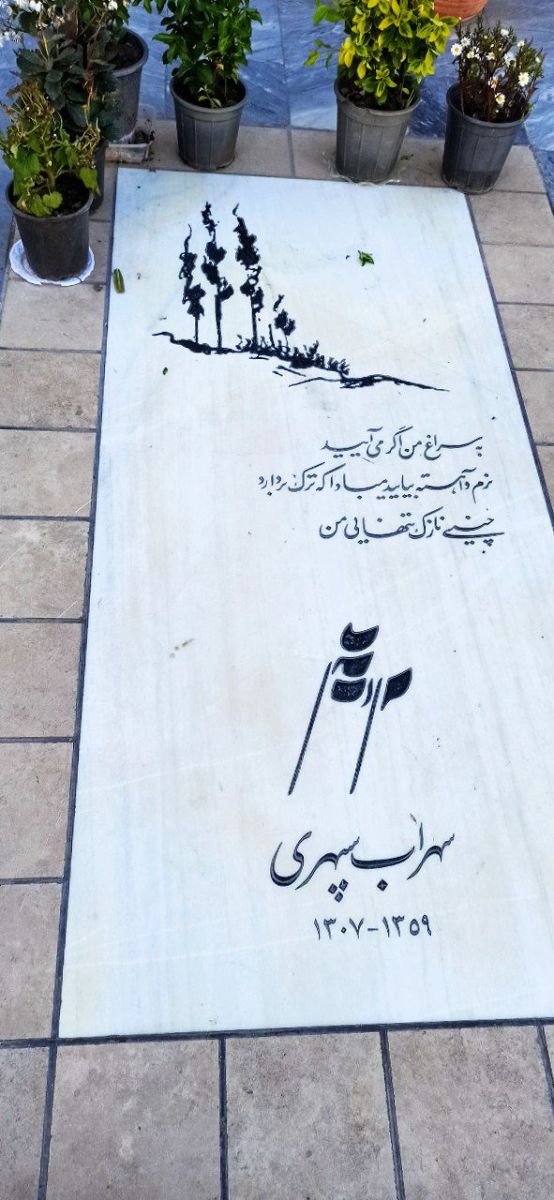 به سراغ من اگر می‌آیید
نرم و آهسته بیایید مبادا که ترک بردارد
چینی نازک تنهایی من
سهراب سپهری
۱۳۰۷-۱۳۵۹